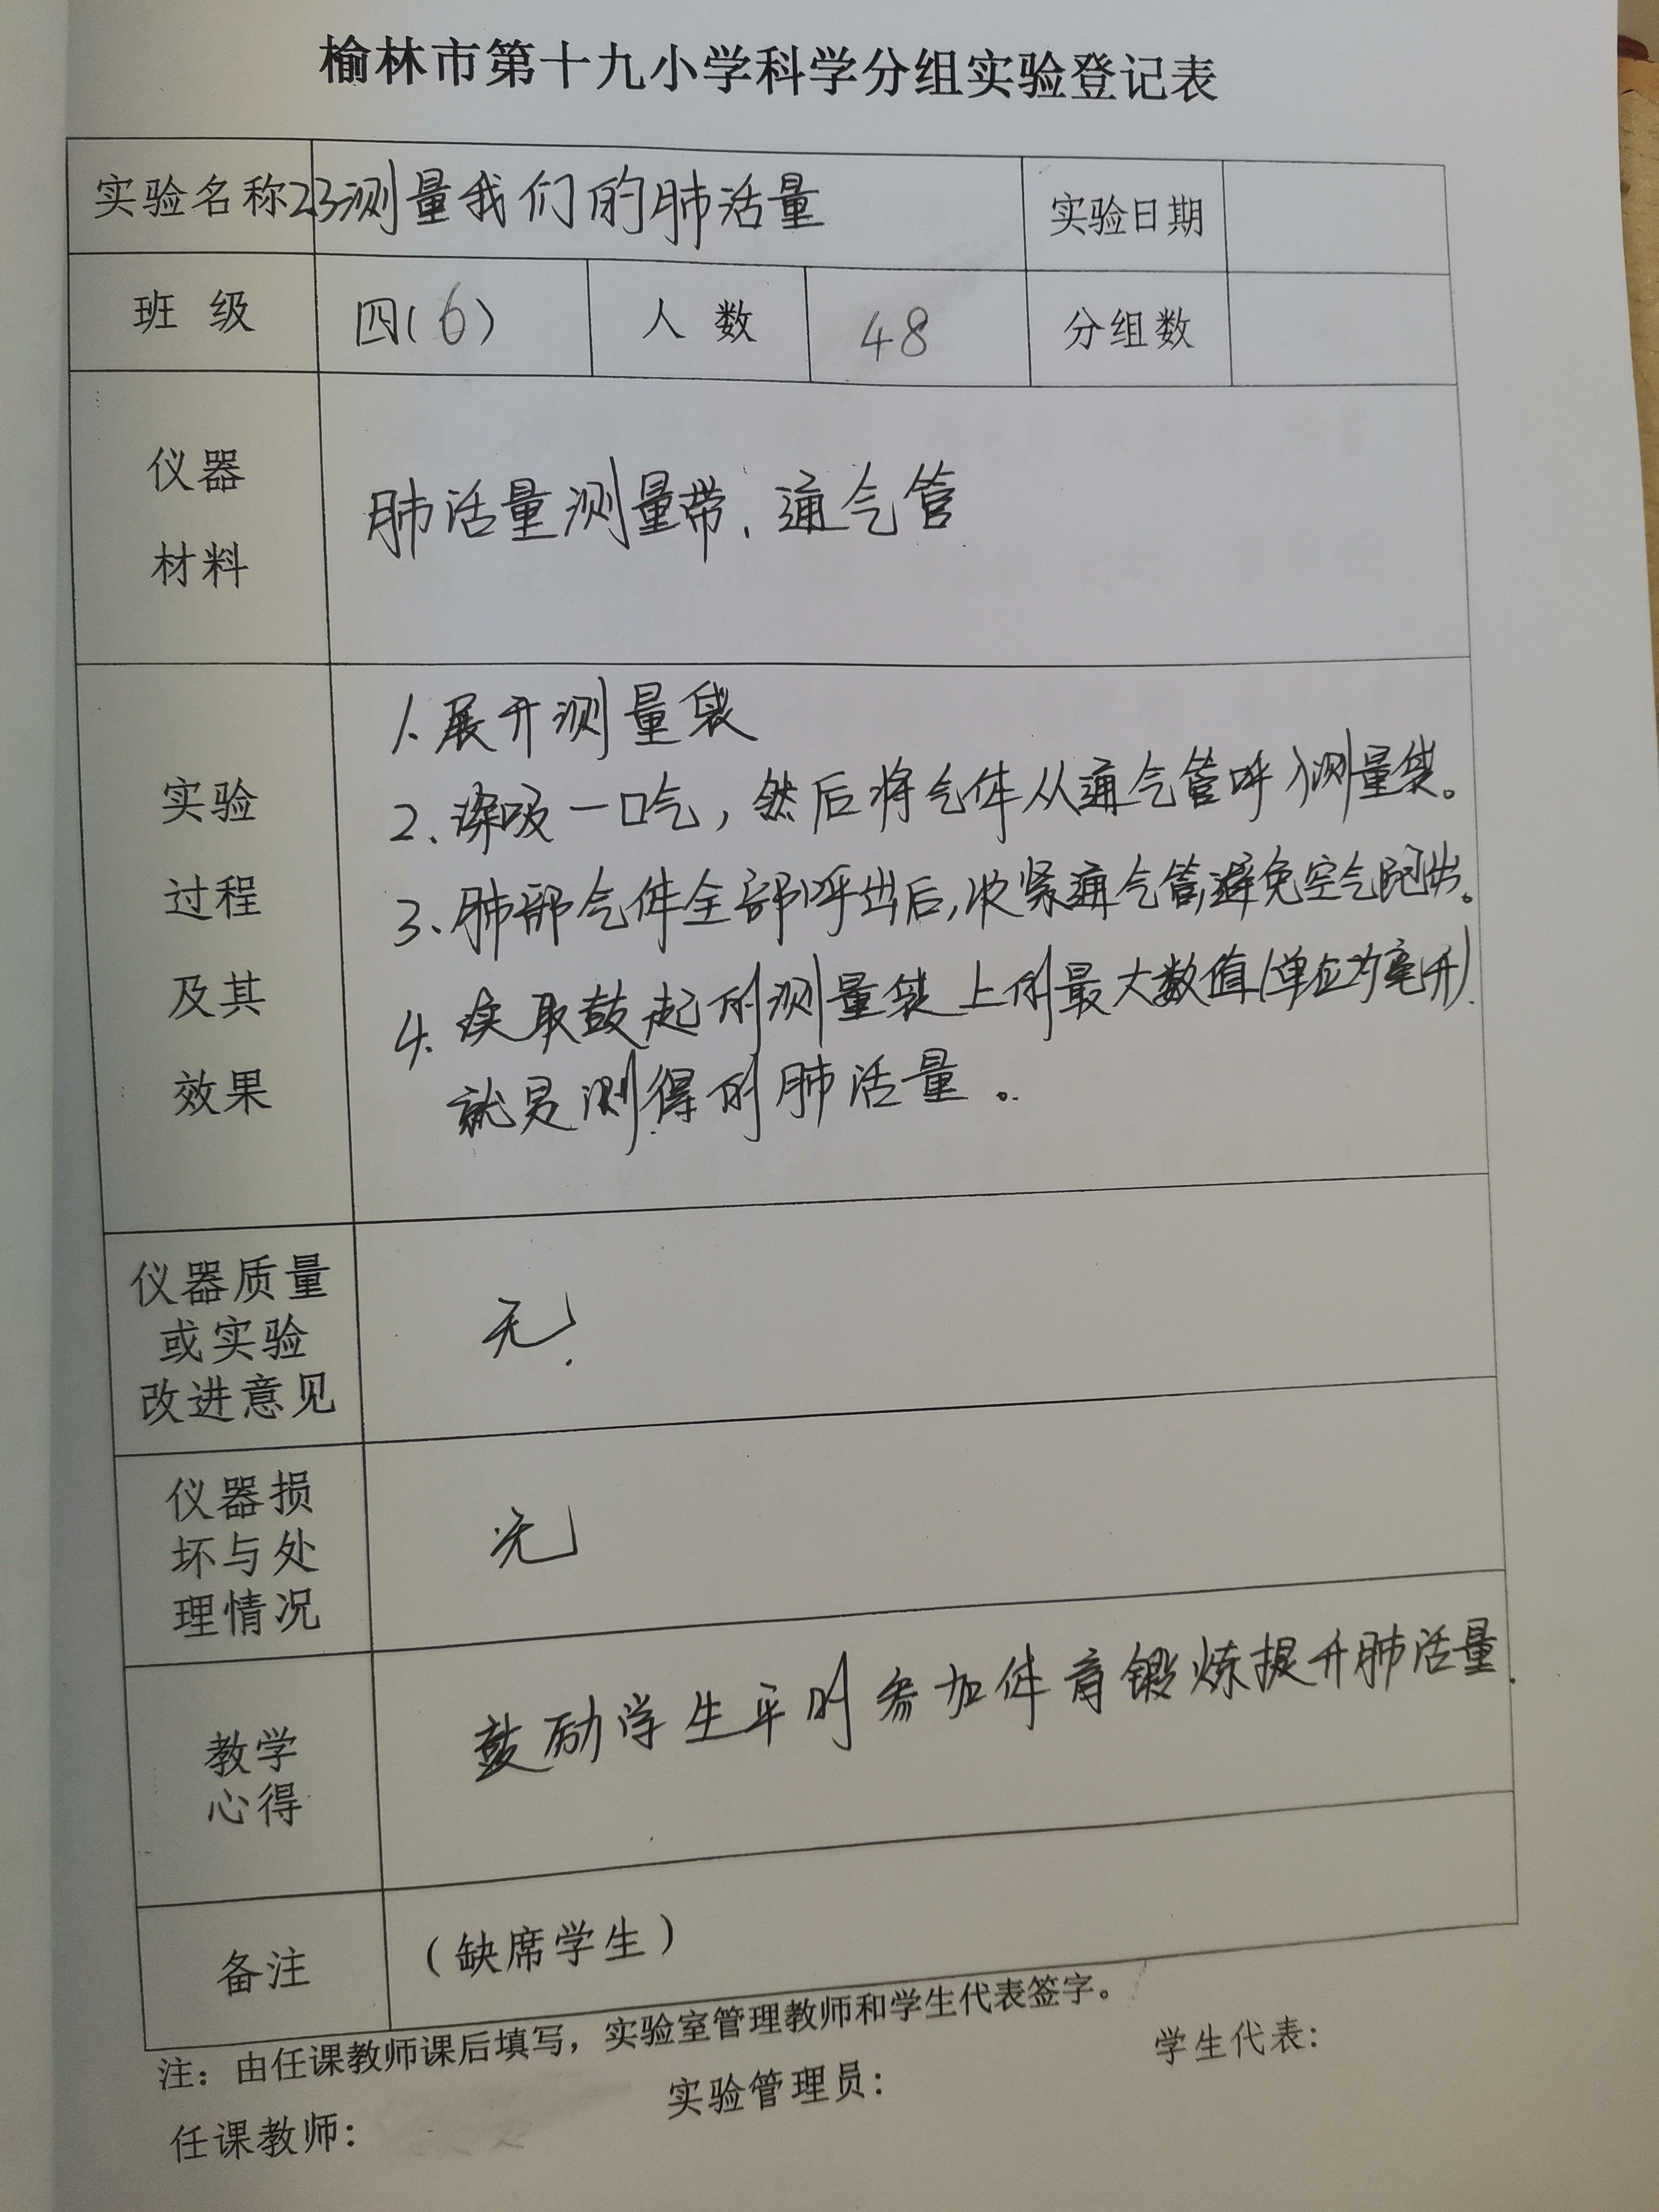 榆林市第十九小学科学分组实验登记表
实验名称 23测量我们的肺活量 实验日期
班 级 四(6) 人 数 48 分组数
仪器
材料
肺活量测量带、通气管
实验
过程
及其
效果
1.展开测量袋
2、深吸一口气，然后将气体从通气管呼入测量袋。
3、肺部气体全部呼出后，收紧通气管,避免空气跑出。
4. 读取鼓起的测量袋上的最大数值(单位为毫升).
就是测得的肺活量。
仪器质量
或实验
改进意见
无.
仪器损
坏与处
理情况
无
教学
心得
鼓励学生平时参加体育锻炼提升肺活量.
备注 （缺席学生）
注：由任课教师课后填写，实验室管理教师和学生代表签字。
任课教师： 实验管理员： 学生代表：